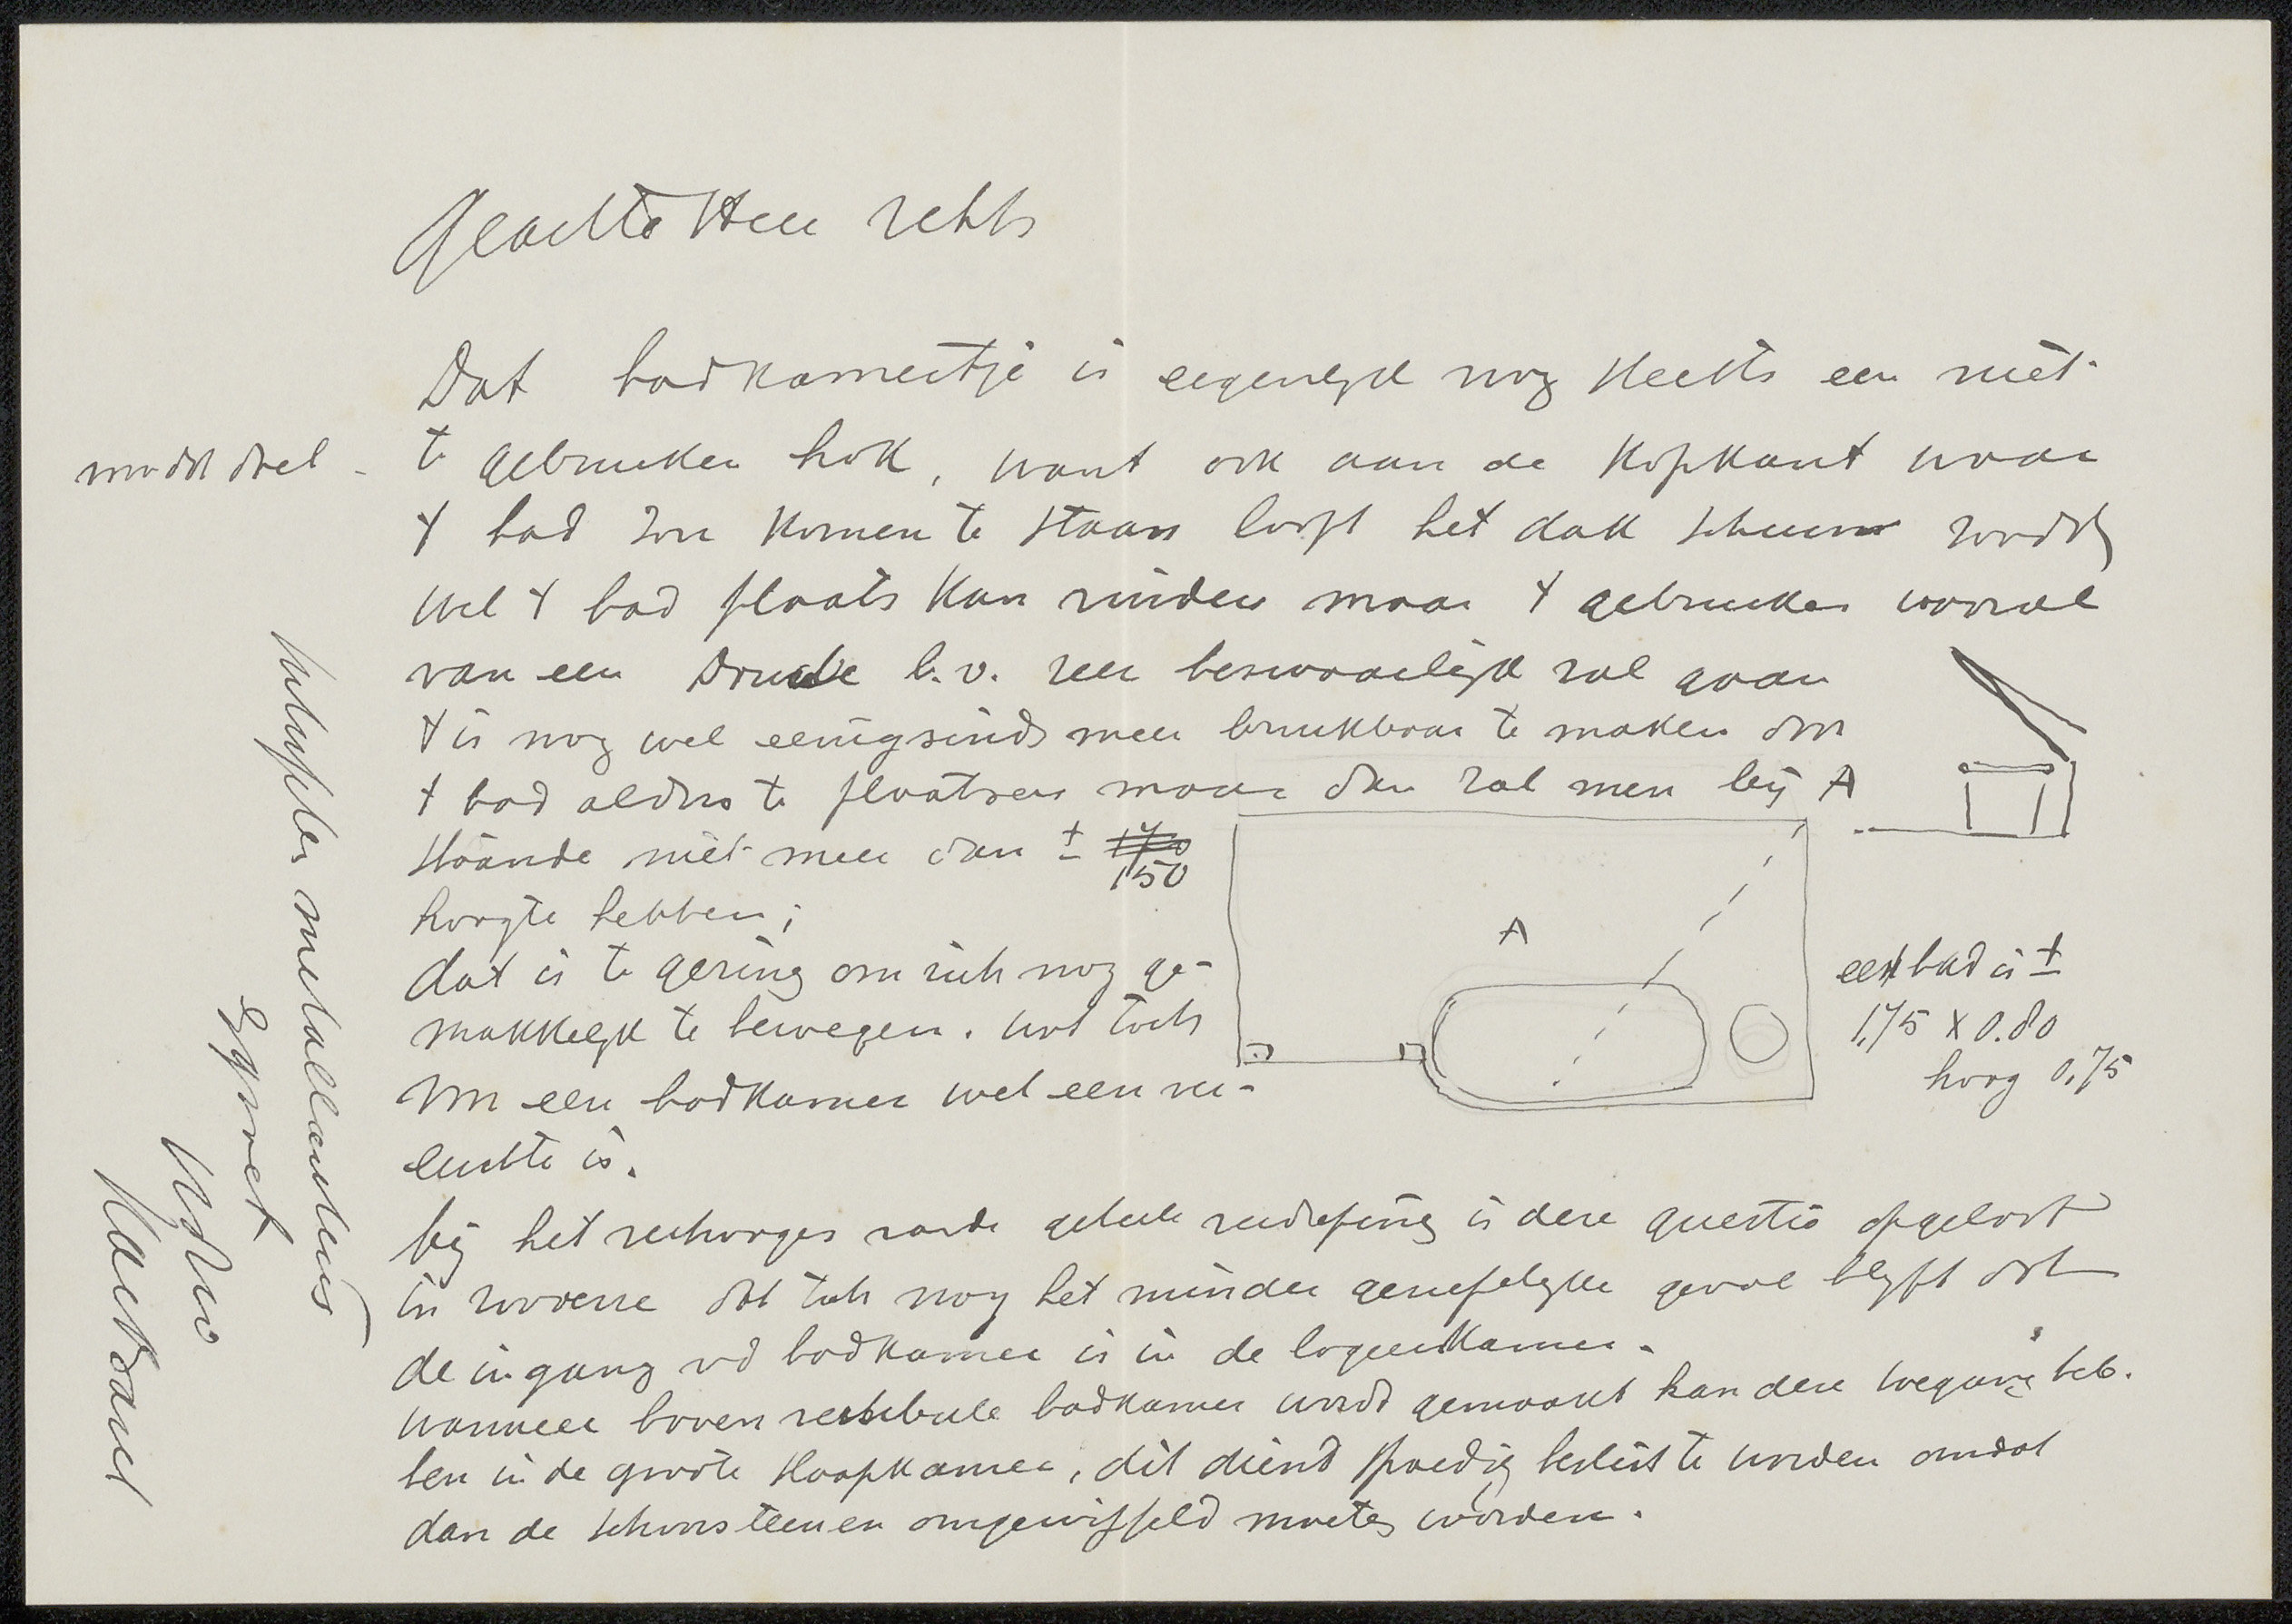 Geachte Heer
Dat badkamertje is eigenlijk nog slechts een niet
te gebruiken hok, want ook aan de kopkant waar
't bad zou komen te staan loopt het dak schuin zoodat
wel 't bad plaats kan vinden maar 't gebruiken vooral
van een Douche b.v. zeer bezwaarlijk zal gaan
't is nog wel eenigsinds meer bruikbaar te maken om
't bad aldus te plaatsen maar dan zal men bij A
staande niet meer dan ± 150
hoogte hebben;
dat is te gering om zich nog ge-
makkelijk te bewegen. wat toch
in een badkamer wel een ver-
eischte is.
bij het verhoogen van de geheele verdieping is deze questie opgelost
in zooverre dat toch nog het minder geriefelijke geval blijft dat
de ingang v/d badkamer is in de logeerkamer.
wanneer boven vestibule badkamer wordt gemaakt kan deze toegang heb-
ben in de groote slaapkamer, dit diend spoedig beslist te worden omdat
dan de schoorsteenen omgewisseld moeten worden.
A
een bad is ±
1.75 x 0.80
hoog 0.75
Hoogachtend